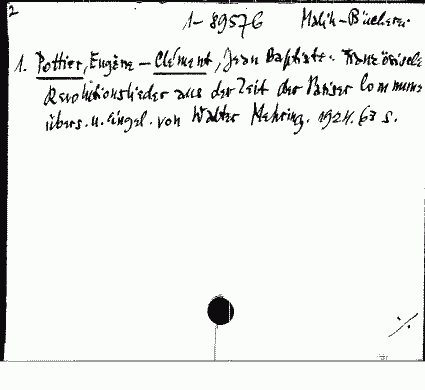 2
1-89576 Malik-Bücherei
1. Pottier, Eugène – Clément, Jean Baptiste. Französische
Revolutionslieder aus der Zeit der Pariser Commune
übers. u. eingel. von Walter Mehring. 1924. 63 S.
./.